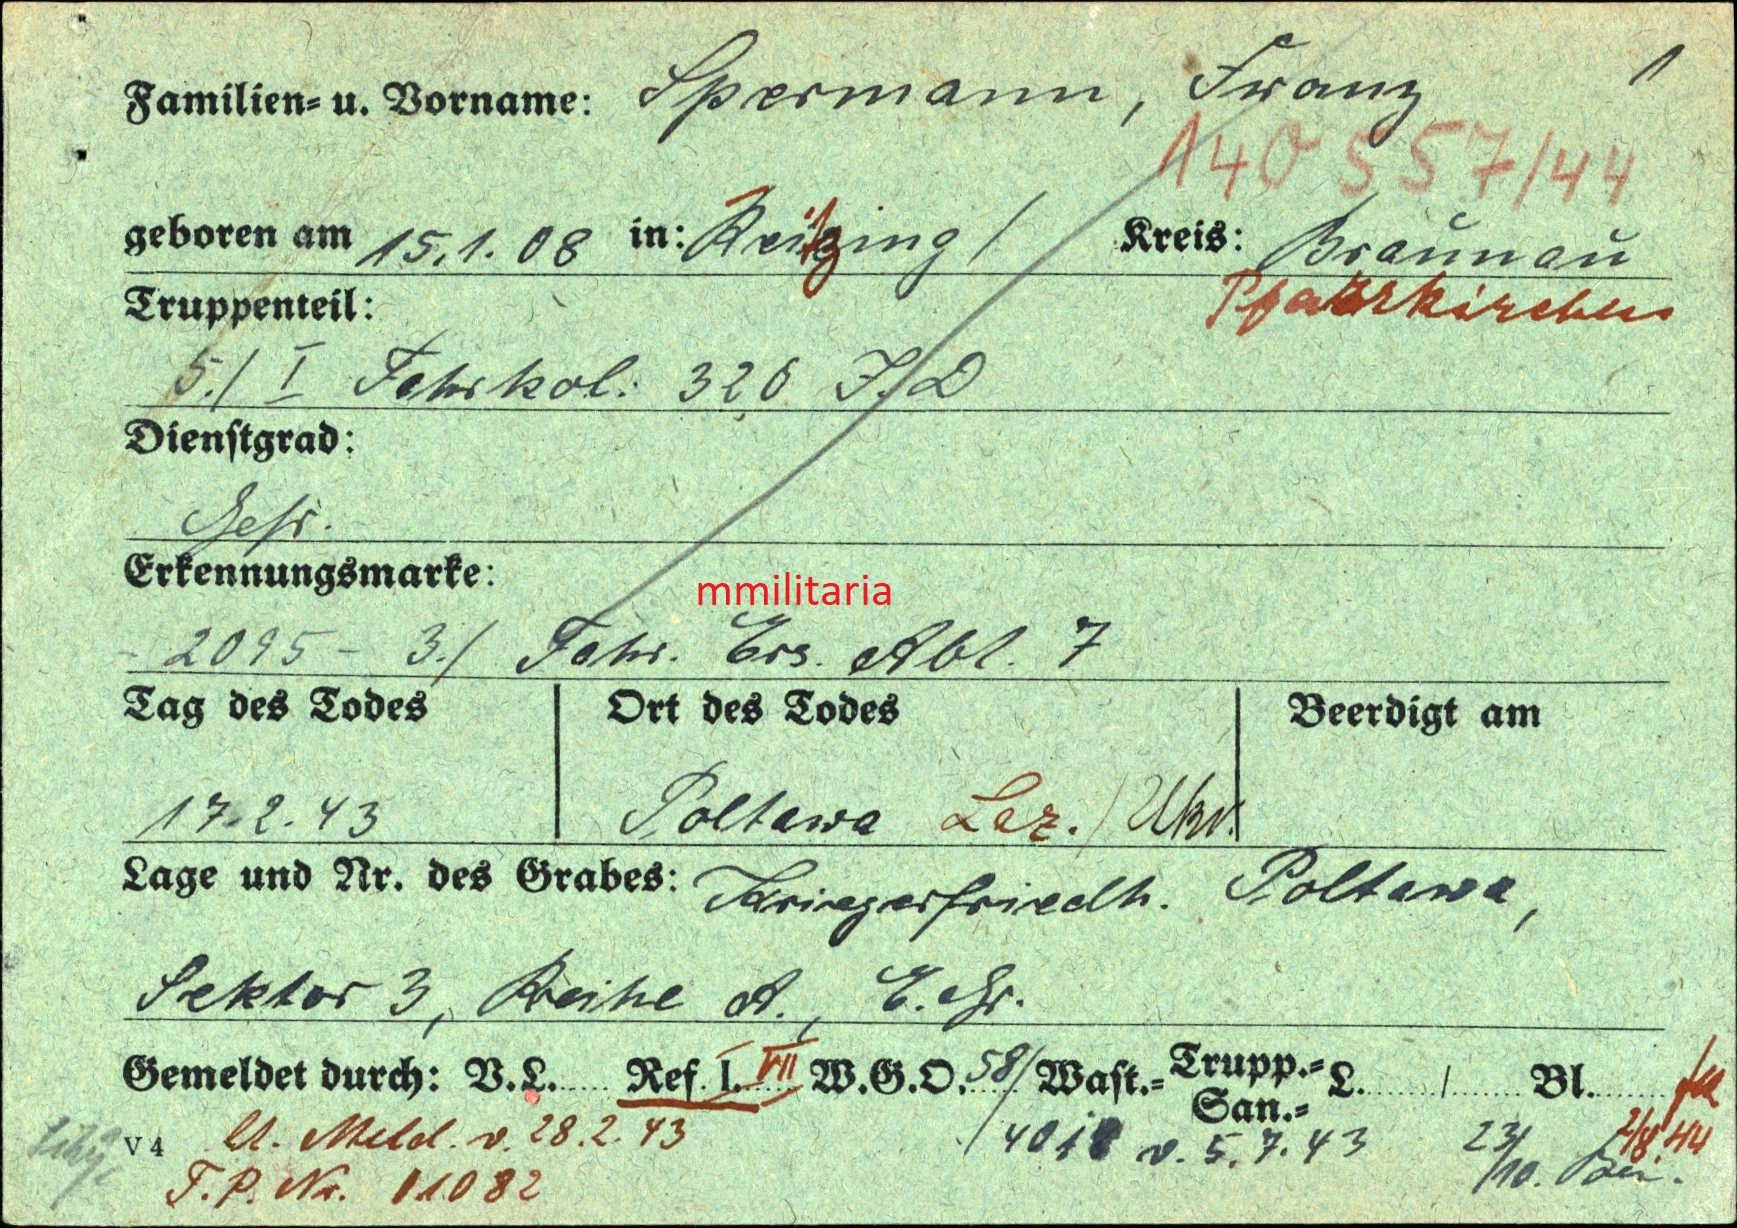 Familien= u. Vorname: Spermann, Franz 1
140 557/44
geboren am 15.1.08 in: Reitzing / Kreis: Braunau
Pfarrkirchen
Truppenteil:
5./ I Fahrkol. 320 I.D
Dienstgrad:
Gefr.
Erkennungsmarke:
mmilitaria
- 2095 - 3./ Fahr. Ers. Abt. 7
Tag des Todes Ort des Todes Beerdigt am
17.2.43 Poltawa Laz. / Ukr.
Lage und Nr. des Grabes: Kriegerfriedh. Poltawa,
Sektor 3, Reihe A., E.Gr.
Gemeldet durch: V.L. Ref. I. VII W.G.O. 58/ Wast.= Trupp.= San.= L. / Bl.
V 4 lt. Meld. v. 28.2.43 / v. 5.7.43 23/10. 2/8.44
F.P. Nr. 11082